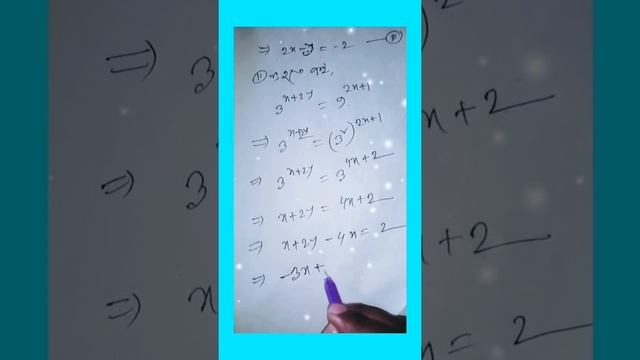 ⇒ 2x-y = -2 —— (iii)
3^{x+2y} = 9^{2x+1}
⇒ 3^{x+2y} = (3²)^{2x+1}
⇒ 3^{x+2y} = 3^{4x+2}
⇒ x+2y = 4x+2
⇒ x+2y - 4x = 2
⇒ -3x+